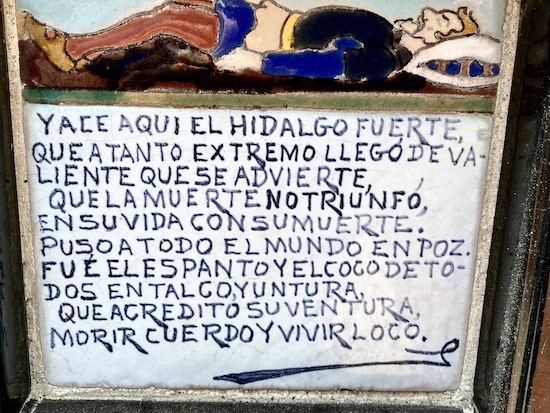 YACE AQUI EL HIDALGO FUERTE,
QUE A TANTO EXTREMO LLEGÓ DE VA-
LIENTE QUE SE ADVIERTE,
QUE LA MUERTE NO TRIUNFÓ,
EN SU VIDA CON SU MUERTE.
PUSO A TODO EL MUNDO EN POZ.
FUÉ EL ESPANTO Y EL COCO DE TO-
DOS EN TAL COYUNTURA,
QUE ACREDITÓ SU VENTURA,
MORIR CUERDO Y VIVIR LOCO.